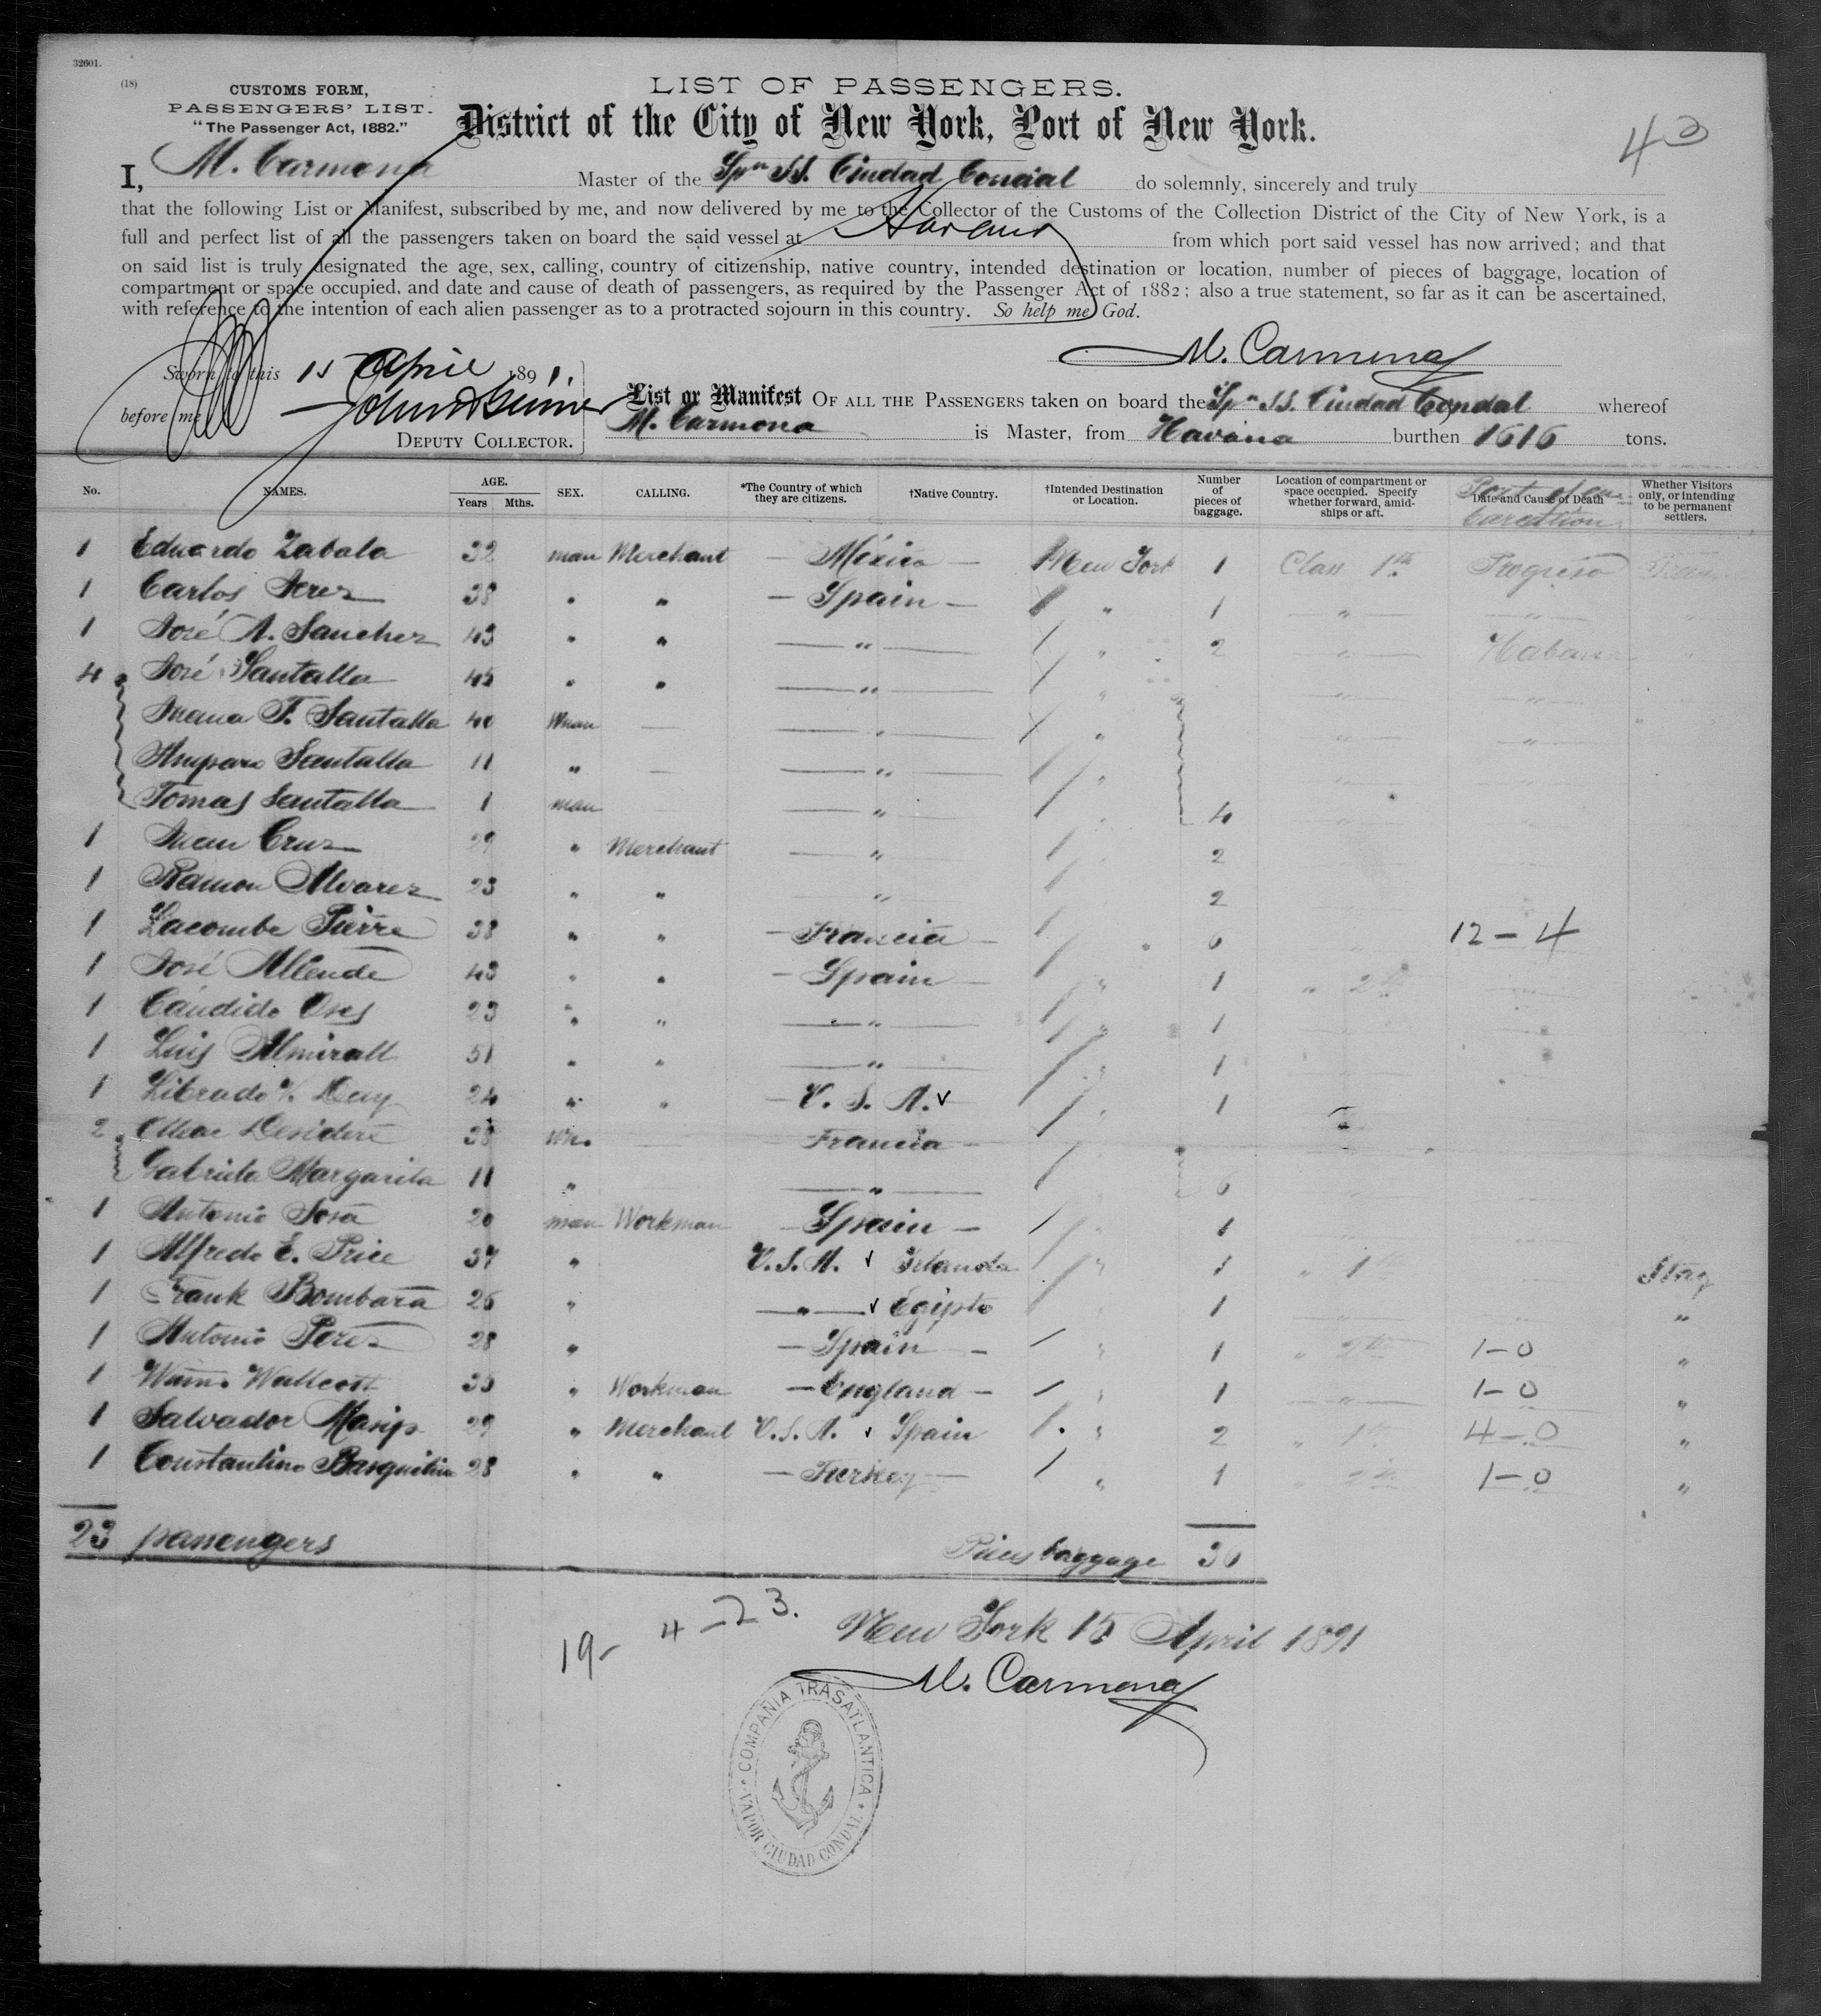 32601.
(18)
CUSTOMS FORM,
PASSENGERS' LIST.
"The Passenger Act, 1882."
LIST OF PASSENGERS.
District of the City of New York, Port of New York.
43
I, M. Carmona Master of the Spn SS. Ciudad Condal do solemnly, sincerely and truly
that the following List or Manifest, subscribed by me, and now delivered by me to the Collector of the Customs of the Collection District of the City of New York, is a
full and perfect list of all the passengers taken on board the said vessel at Havana from which port said vessel has now arrived; and that
on said list is truly designated the age, sex, calling, country of citizenship, native country, intended destination or location, number of pieces of baggage, location of
compartment or space occupied, and date and cause of death of passengers, as required by the Passenger Act of 1882; also a true statement, so far as it can be ascertained,
with reference to the intention of each alien passenger as to a protracted sojourn in this country. So help me God.
M. Carmona
Sworn to this 15 April 1891.
before me
DEPUTY COLLECTOR.
List or Manifest OF ALL THE PASSENGERS taken on board the Spn SS. Ciudad Condal whereof
M. Carmona is Master, from Havana burthen 1616 tons.
No. NAMES. AGE. Years Mths. SEX. CALLING. *The Country of which they are citizens. †Native Country. †Intended Destination or Location. Number of pieces of baggage. Location of compartment or space occupied. Specify whether forward, amidships or aft. Date and Cause of Death Whether Visitors only, or intending to be permanent settlers.
1 Eduardo Zabala 32 man Merchant — México — New York 1 Class 1th Progreso
1 Carlos 38 " " — Spain — " 1 " "
1 José A. Sanchez 43 " " " " 2 " Habana
4 José Santalla 45 " " " " " "
Juana F. Santalla 40 Wman — " " " "
Amparo Santalla 11 " — " "
Tomas Santalla 1 man " 4
1 Juan Cruz 29 " Merchant " 2
1 Ramon Alvarez 23 " " " 2
1 Lacombe Pierre 38 " " — Francia — 6 " 12-4
1 José Allende 43 " " — Spain — " 1 " 2th
1 Cándido Oses 23 " " " " 1
1 Luis Almirall 51 " " " " 1
1 Librado 24 " " — U. S. A. v 1
2 38 Wn. — Francia —
Gabriela Margarita 11 " " 6
1 Antonio Sosa 20 man Workman — Spain — 1
1 Alfredo E. Price 37 " U.S.A. v Irlanda " 1 " 1th Stay
1 Frank Bombara 26 " " v Egipto 1 "
1 Antonio Perez 28 " — Spain — " 1 " 2th 1-0 "
1 Wallcott 35 " Workman — England — " 1 " 1-0 "
1 Salvador Masip 29 " Merchant U.S.A. v Spain " 2 " 1th 4-0 "
1 Constantino 28 " " — Turkey — " 1 " 2th 1-0 "
23 passengers Pieces baggage 36
19- 4-23.
New York 15 April 1891
M. Carmona
COMPAÑIA TRASATLANTICA
VAPOR CIUDAD CONDAL